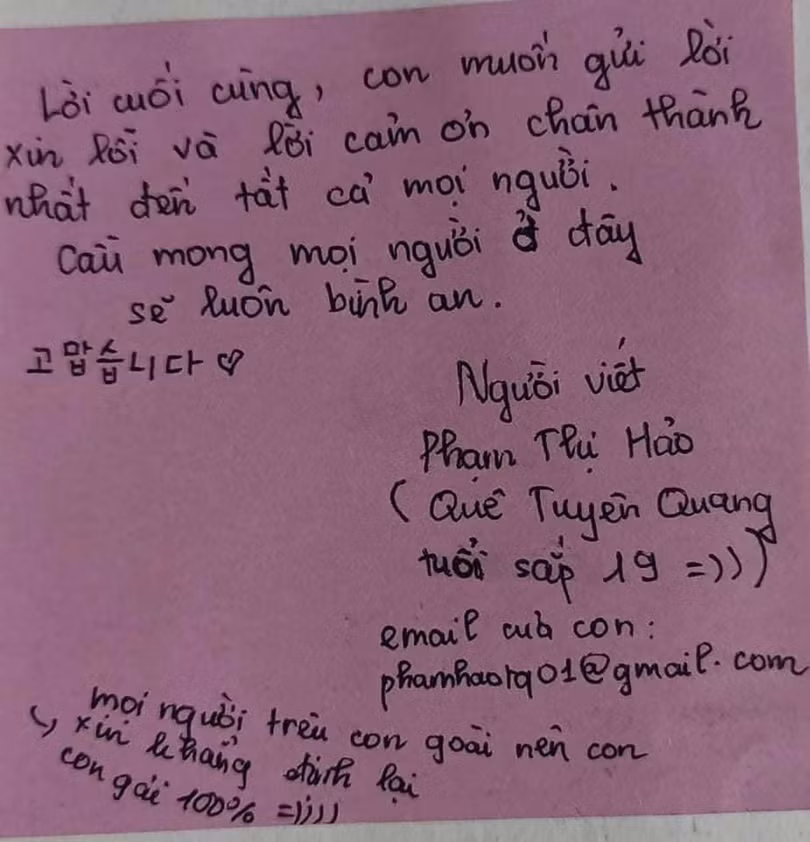 Lời cuối cùng, con muốn gửi lời
xin lỗi và lời cảm ơn chân thành
nhất đến tất cả mọi người.
Cầu mong mọi người ở đây
sẽ luôn bình an.
고맙습니다♡
Người viết
Phạm Thị Hảo
(Quê Tuyên Quang
tuổi sắp 19 =)))
email của con:
phamhaotq01@gmail.com
mọi người trêu con goài nên con
xin khẳng định lại
con gái 100% =))))